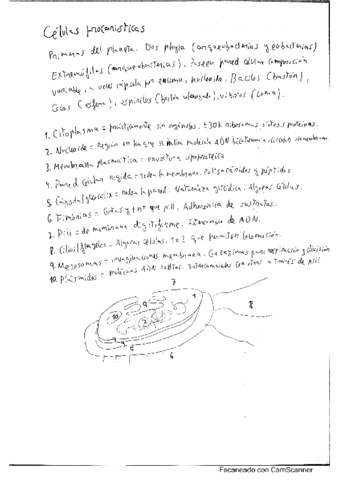 Células procarióticas
Primeras del planeta. Dos phyla (arqueobacterias y eubacterias)
Extremófilas (arqueobacterias). Poseen pared celular composición
variable, a veces cápsula por encima, nucleoide. Bacilos (bastón),
Cocos (esfera), espirilos (bastón alargado), vibrios (coma).
1. Citoplasma = prácticamente sin orgánulos. ribosomas proteínas.
2. Nucleoide = Región en la que se sitúa molécula ADN bicatenaria, circular sin membrana
3. Membrana plasmática = envoltura lipoproteica
4. Pared celular rígida = rodea la membrana. Polisacáridos y péptidos
5. Cápsula/glicocálix = rodea la pared. Naturaleza glicídica. Algunas células.
6. Fimbrias = Cortas y + nº que pili. Adherencia de sustratos.
7. Pili = de membrana digitiforme. Intercambio de ADN.
8. Cilios/flagelos = Algunas células. 1 o 2 que permiten locomoción.
9. Mesosomas = invaginaciones membrana. Con enzimas para respiración y división
10. Plásmidos = moléculas ADN sueltas. Intercambiables con otras a través de pili
7
10
9
1
2
8
6
Escaneado con CamScanner